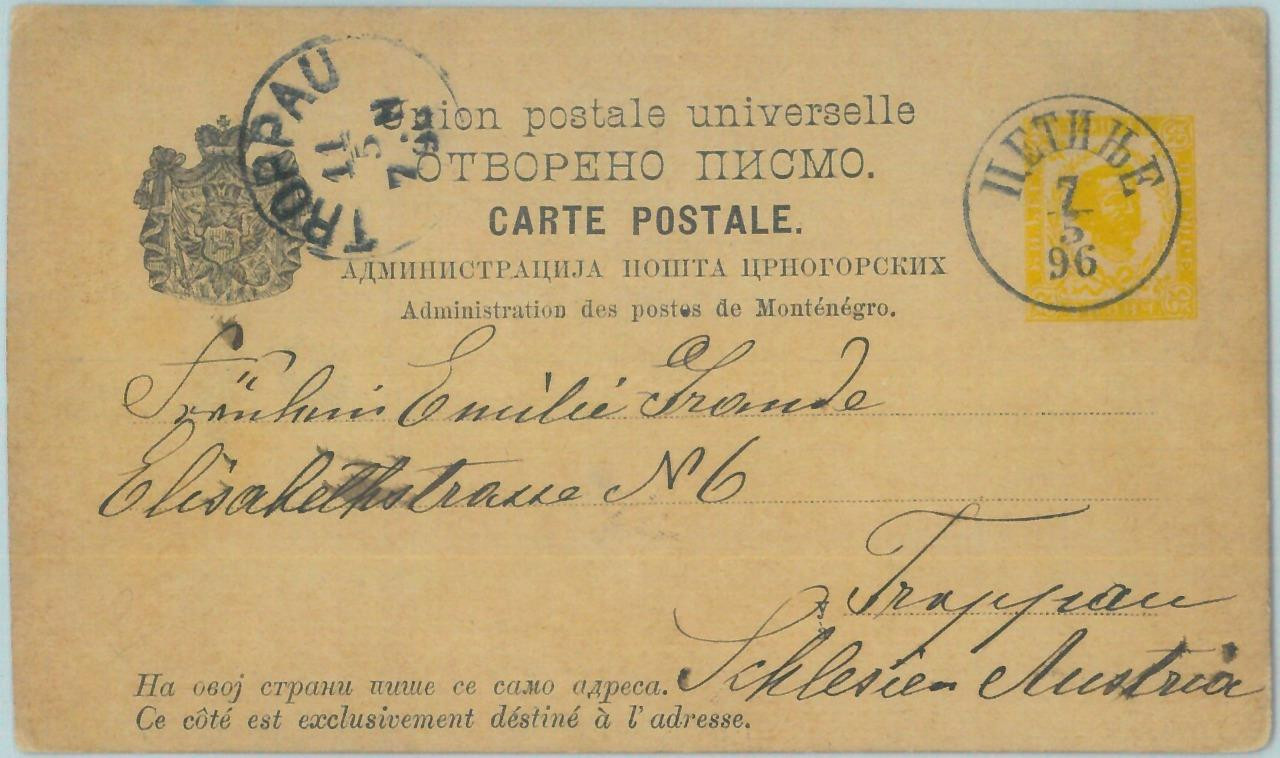 TROPPAU
11
5
7 N
96
Union postale universelle
ОТВОРЕНО ПИСМО.
CARTE POSTALE.
АДМИНИСТРАЦИЈА ПОШТА ЦРНОГОРСКИХ
Administration des postes de Monténégro.
ЦЕТИЊЕ
7
5
96
Fräulein Emilie Grande
Elisabethstrasse N 6
Troppau
Schlesien Austria
На овој страни пише се само адреса.
Ce côté est exclusivement déstiné à l'adresse.